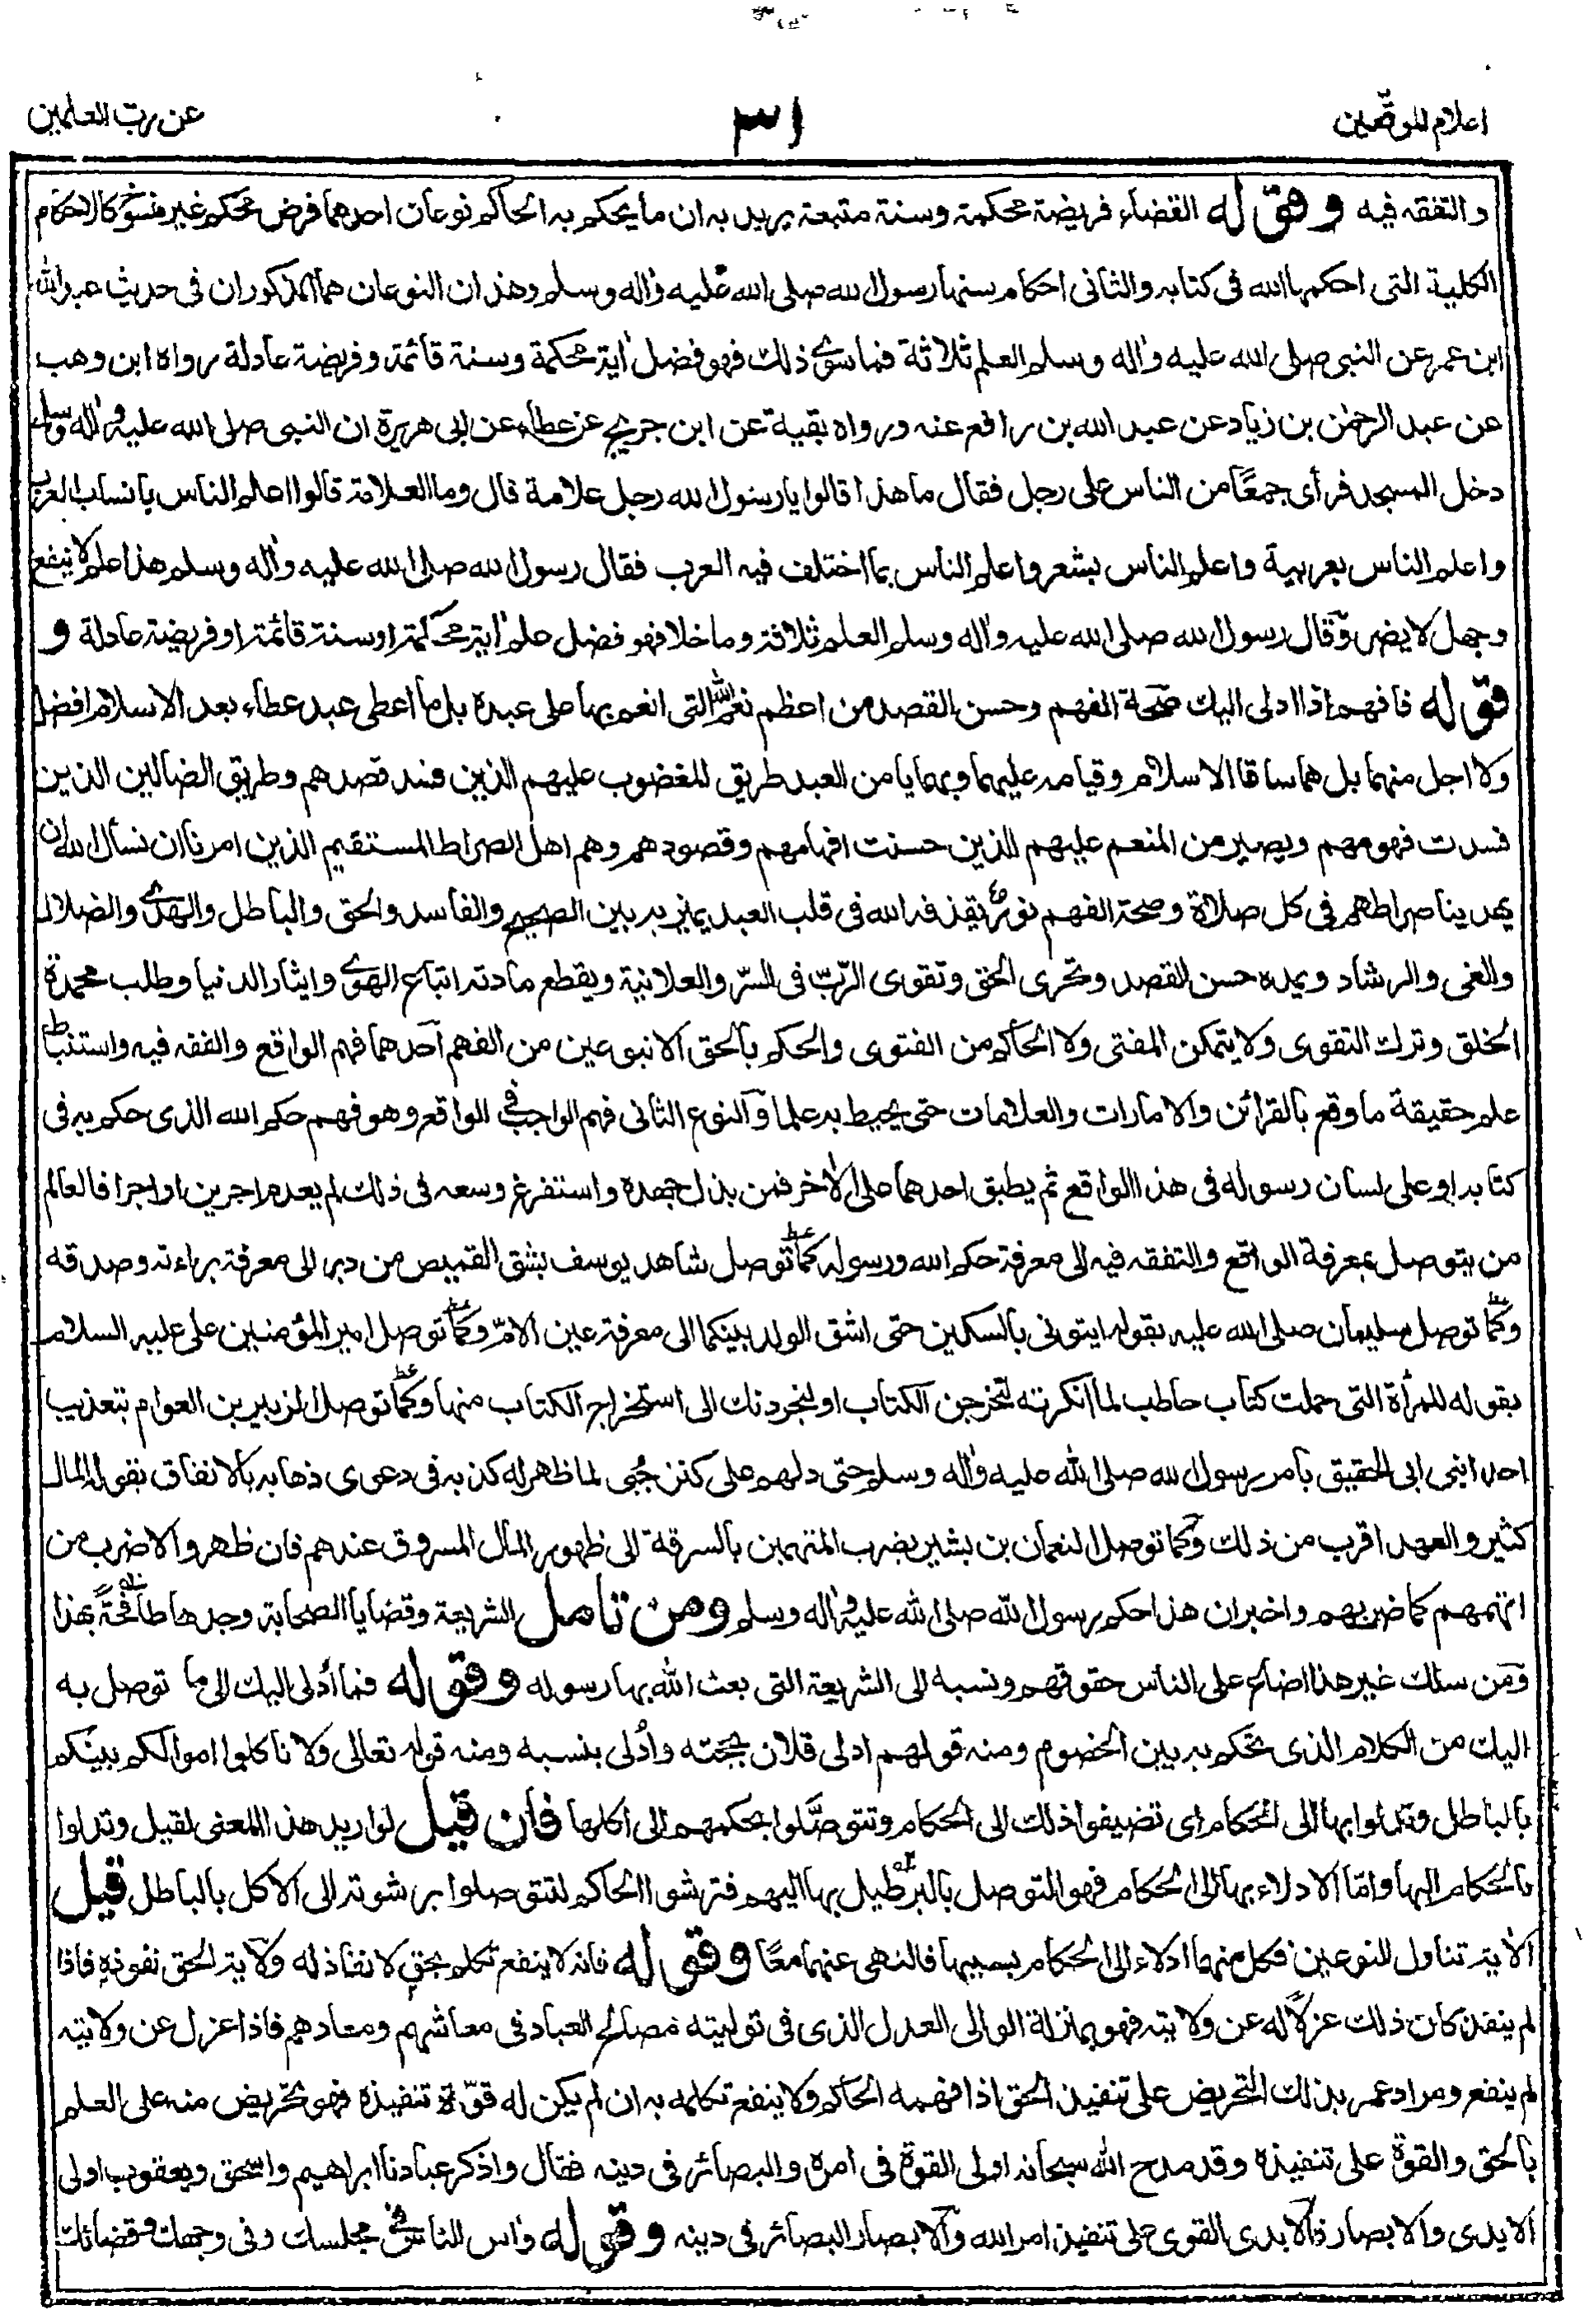 اعلام الموقعین
۳۱
عن رب العلمین
والتفقه فيه وقوله القضاء فريضة محكمة وسنة متبعة يريد به ان ما يحكم به الحاكم نوعان احدهما فرض محكم غير منسوخ كالاحكام
الكلية التى احكمها الله فى كتابه والثانى احكام سنها رسول الله صلى الله عليه واله وسلم وهذان النوعان هما المذكوران فى حديث عبد الله
ابن عمر عن النبى صلى الله عليه واله وسلم العلم ثلاثة فما سوى ذلك فهو فضل أية محكمة وسنة قائمة وفريضة عادلة رواه ابن وهب
عن عبد الرحمٰن بن زياد عن عبد الله بن رافع عنه ورواه بقية عن ابن جريج عن عطاء عن ابى هريرة ان النبى صلى الله عليه واله وسلم
دخل المسجد فرأى جمعًا من الناس على رجل فقال ما هذا قالوا يا رسول الله رجل علامة قال وما العلامة قالوا اعلم الناس بانساب العرب
واعلم الناس بعربية واعلم الناس بشعر واعلم الناس بما اختلف فيه العرب فقال رسول الله صلى الله عليه واله وسلم هذا علم لا ينفع
وجهل لا يضر وقال رسول الله صلى الله عليه واله وسلم العلم ثلاثة وما خلا فهو فضل علم أية محكمة او سنة قائمة او فريضة عادلة و
قوله فافهم اذا ادلى اليك صحة الفهم وحسن القصد من اعظم نعم الله التى انعم بها على عبده بل ما اعطى عبد عطاء بعد الاسلام افضل
ولا اجل منهما بل هما ساقا الاسلام وقيامه عليهما وبهما يامن العبد طريق المغضوب عليهم الذين فسد قصدهم وطريق الضالين الذين
فسدت فهومهم ويصير من المنعم عليهم الذين حسنت افهامهم وقصودهم وهم اهل الصراط المستقيم الذين امرنا ان نسأل الله ان
يهدينا صراطهم فى كل صلاة وصحة الفهم نور يقذفه الله فى قلب العبد يميز به بين الصحيح والفاسد والحق والباطل والهدى والضلال
والغى والرشاد ويمده حسن القصد وتحرى الحق وتقوى الرّبّ فى السّر والعلانية ويقطع مادته اتباع الهوى وايثار الدنيا وطلب محمدة
الخلق وترك التقوى ولا يتمكن المفتى ولا الحاكم من الفتوى والحكم بالحق الا بنوعين من الفهم احدهما فهم الواقع والفقه فيه واستنباط
علم حقيقة ما وقع بالقرائن والامارات والعلامات حتى يحيط به علما والنوع الثانى فهم الواجب فى الواقع وهو فهم حكم الله الذى حكم به فى
كتابه او على لسان رسوله فى هذا الواقع ثم يطبق احدهما على الاخر فمن بذل جهده واستفرغ وسعه فى ذلك لم يعدم اجرين او اجرا فالعالم
من يتوصل بمعرفة الواقع والتفقه فيه الى معرفة حكم الله ورسوله كما توصل شاهد يوسف بشق القميص من دبر الى معرفة براءته وصدقه
وكما توصل سليمان صلى الله عليه بقوله ايتونى بالسكين حتى اشق الولد بينكما الى معرفة عين الامّ وكما توصل امير المؤمنين على عليه السلام
بقوله للمرأة التى حملت كتاب حاطب لما انكرته لتخرجن الكتاب او لنجردنك الى استخراج الكتاب منها وكما توصل الزبير بن العوام بتعذيب
احد ابنى ابى الحقيق بامر رسول الله صلى الله عليه واله وسلم حتى دلهم على كنز جُبى لما ظهر له كذبه فى دعوى ذهابه بالانفاق بقوله المال
كثير والعهد اقرب من ذلك وكما توصل النعمان بن بشير بضرب المتهمين بالسرقة الى ظهور المال المسروق عندهم فان ظهر والا ضرب من
اتهمهم كما ضربهم واخبر ان هذا حكم رسول الله صلى الله عليه واله وسلم ومن تامل الشريعة وقضايا الصحابة وجدها طافحةً بهذا
ومن سلك غير هذا اضاع على الناس حقوقهم ونسبه الى الشريعة التى بعث الله بها رسوله وقوله فما أدلى اليك الى ما توصل به
اليك من الكلام الذى تحكم به بين الخصوم ومنه قولهم ادلى فلان بحجته وأدلى بنسبه ومنه قوله تعالى ولا تاكلوا اموالكم بينكم
بالباطل وتدلوا بها الى الحكام اى تضيفوا ذلك الى الحكام وتتوصّلوا بحكمهم الى اكلها فان قيل لو اريد هذا المعنى لقيل وتدلوا
بالحكام اليها واما الادلاء بها الى الحكام فهو التوصل بالبرطيل بها اليهم فترشوا الحاكم لتتوصلوا برشوته الى الاكل بالباطل قيل
الأية تناول النوعين فكل منهما ادلاء الى الحكام بسببها فالنهى عنهما معًا وقوله فانه لا ينفع تكلم بحق لا نفاذ له ولاية الحق نفوذه فاذا
لم ينفذ كان ذلك عزلا له عن ولايته فهو بمنزلة الوالى العدل الذى فى توليته مصالح العباد فى معاشهم ومعادهم فاذا عزل عن ولايته
لم ينفع ومراد عمر بذلك التحريض على تنفيذ الحق اذا فهمه الحاكم ولا ينفع تكلمه به ان لم يكن له قوّة تنفيذه فهو تحريض منه على العلم
بالحق والقوة على تنفيذه وقد مدح الله سبحانه اولى القوة فى امره والبصائر فى دينه فقال واذكر عبادنا ابراهيم واسحق ويعقوب اولى
الايدى والابصار فالايدى القوى على تنفيذ امر الله والابصار البصائر فى دينه وقوله واس الناس فى مجلسك وفى وجهك وقضائك